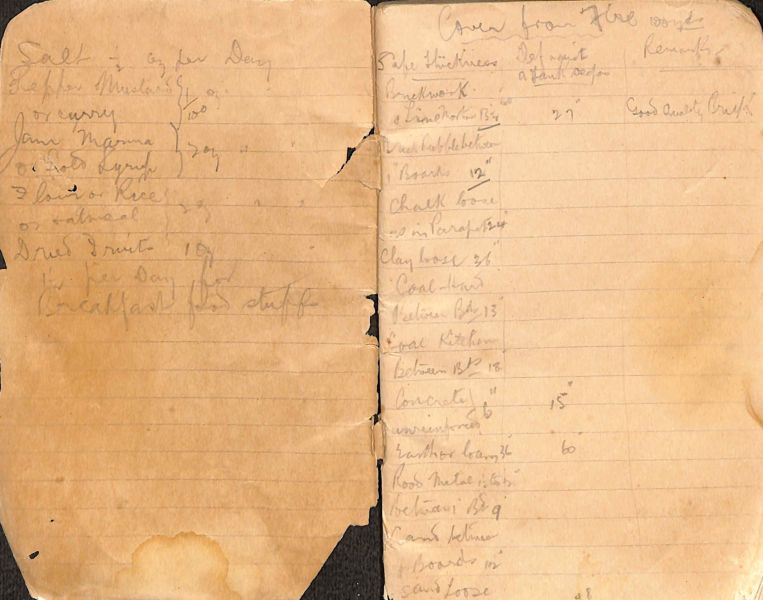 Salt ½ oz per Day
Pepper Mustard } 1/100 oz
or curry
Jam Marma } 2 oz " "
or Gold Syrup
Flour or Rice } 2 oz " "
or oatmeal
Dried Fruits 1 oz "
per Day for
Breakfast food stuffs
Cover from Fire 100 yds
Safe Thickness Remarks
Brickwork
in Lime Mortar 27" Good Quality Brick
Brick Rubble between
1" Boards 12"
Chalk loose
as in Parapet 24"
Clay loose 36"
Coal Hard
Between Bds 13"
Coal Kitchen
Between Bds 18
Concrete 6" 15"
unreinforced
Earth or loam 36" 60"
Road Metal
between 1" Bds 9"
Sand between
1" Boards 12"
Sand loose 48